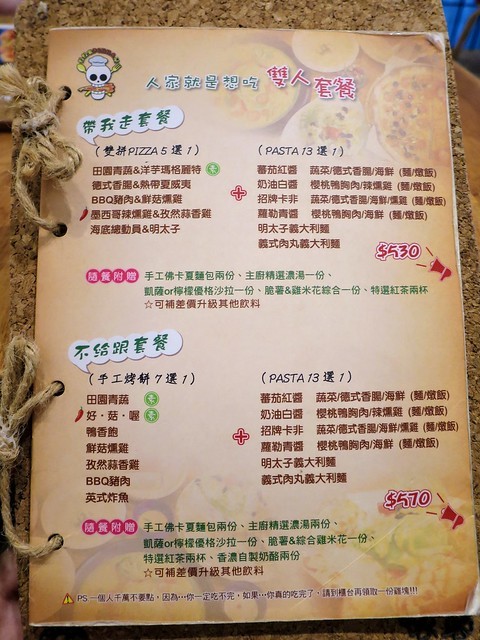 人家就是想吃 雙人套餐
帶我走套餐
(雙拼PIZZA 5 選 1)
田園青蔬&洋芋瑪格麗特 素
德式香腸&熱帶夏威夷
BBQ豬肉&鮮菇燻雞
墨西哥辣燻雞&孜然蒜香雞
海底總動員&明太子
+
(PASTA 13 選 1)
蕃茄紅醬 蔬菜/德式香腸/海鮮 (麵/燉飯)
奶油白醬 櫻桃鴨胸肉/辣燻雞 (麵/燉飯)
招牌卡非 蔬菜/德式香腸/海鮮/燻雞 (麵/燉飯)
蘿勒青醬 櫻桃鴨胸肉/海鮮 (麵/燉飯)
明太子義大利麵
義式肉丸義大利麵
$530
隨餐附贈 手工佛卡夏麵包兩份、主廚精選濃湯一份、
凱薩or檸檬優格沙拉一份、脆薯&雞米花綜合一份、特選紅茶兩杯
☆可補差價升級其他飲料
不給跟套餐
(手工烤餅 7 選 1)
田園青蔬 素
好・菇・喔 素
鴨香飽
鮮菇燻雞
孜然蒜香雞
BBQ豬肉
英式炸魚
+
(PASTA 13 選 1)
蕃茄紅醬 蔬菜/德式香腸/海鮮 (麵/燉飯)
奶油白醬 櫻桃鴨胸肉/辣燻雞 (麵/燉飯)
招牌卡非 蔬菜/德式香腸/海鮮/燻雞 (麵/燉飯)
蘿勒青醬 櫻桃鴨胸肉/海鮮 (麵/燉飯)
明太子義大利麵
義式肉丸義大利麵
$570
隨餐附贈 手工佛卡夏麵包兩份、主廚精選濃湯兩份、
凱薩or檸檬優格沙拉一份、脆薯&綜合雞米花一份、
特選紅茶兩杯、香濃自製奶酪兩份
☆可補差價升級其他飲料
PS 一個人千萬不要點，因為…你一定吃不完，如果…你真的吃完了，請到櫃台再領取一份雞塊!!!